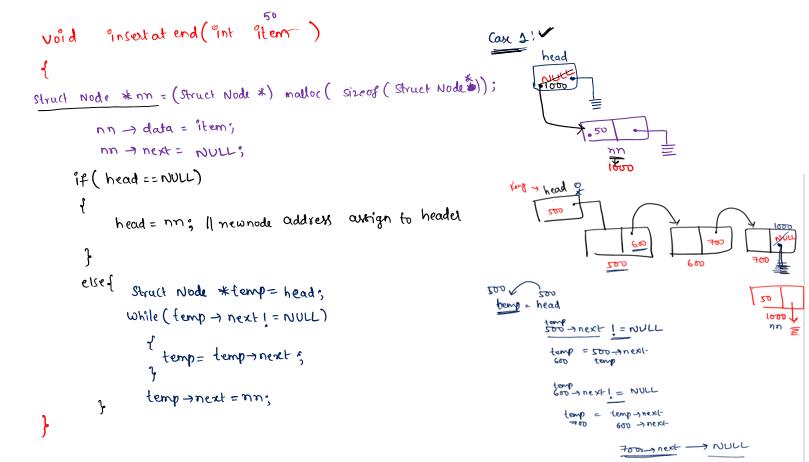 50
void insertatend(int item)
{
Struct Node *nn = (Struct Node *) malloc( sizeof( Struct Node*));
nn → data = item;
nn → next = NULL;
if( head ==NULL)
{
head = nn; // newnode address assign to header
}
else{
Struct Node *temp= head;
while( temp → next != NULL)
{
temp= temp→next;
}
temp→next = nn;
}
}
Case 1:
head
NULL
1000
50
nn
1000
head
500
600
700
1000
NULL
500
600
700
50
1000
nn
500 500
temp = head
temp
500→next != NULL
temp = 500→next
600 temp
temp
600→next != NULL
temp = temp→next
700 600→next
700→next → NULL